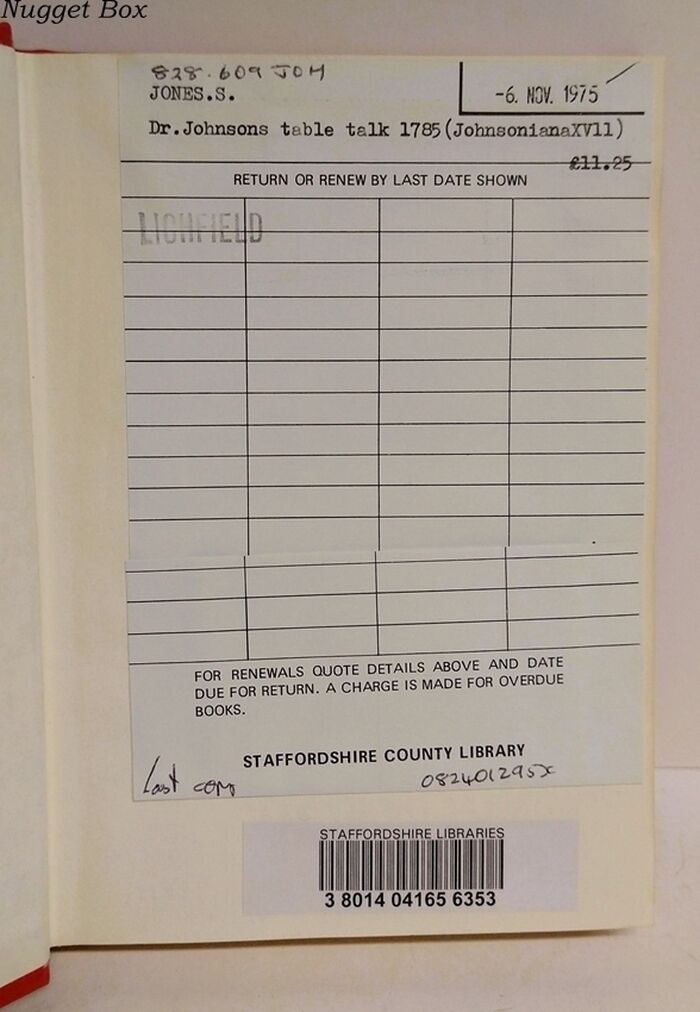 Nugget Box
828.609 JOH
JONES.S.
-6. NOV. 1975
Dr.Johnsons table talk 1785(JohnsonianaXV11)
£11.25
RETURN OR RENEW BY LAST DATE SHOWN
LICHFIELD
FOR RENEWALS QUOTE DETAILS ABOVE AND DATE
DUE FOR RETURN. A CHARGE IS MADE FOR OVERDUE
BOOKS.
STAFFORDSHIRE COUNTY LIBRARY
Last copy
082401295X
STAFFORDSHIRE LIBRARIES
3 8014 04165 6353